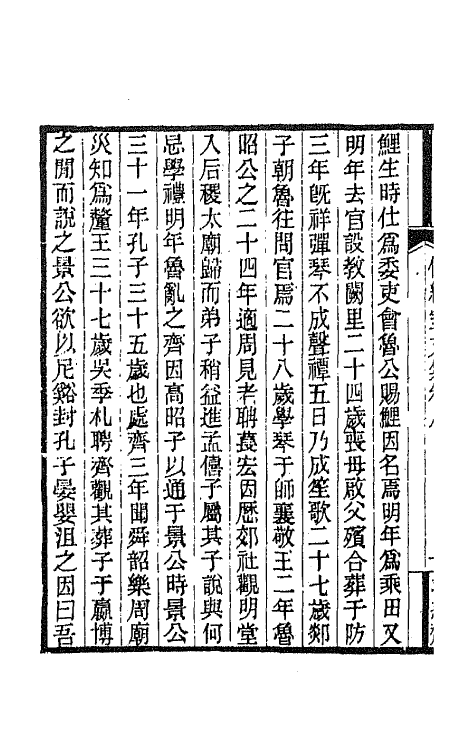 鯉生時仕爲委吏會魯公賜鯉因名焉明年爲乘田又
明年去官設教闕里二十四歲喪母啟父殯合葬于防
三年旣祥彈琴不成聲禫五日乃成笙歌二十七歲郯
子朝魯往問官焉二十八歲學琴于師襄敬王二年魯
昭公之二十四年適周見老聃萇宏因歷郊社觀明堂
入后稷太廟歸而弟子稍益進孟僖子屬其子說與何
忌學禮明年魯亂之齊因高昭子以通于景公時景公
三十一年孔子三十五歲也處齊三年聞舜韶樂周廟
災知爲釐王三十七歲吳季札聘齊觀其葬子于嬴博
之閒而說之景公欲以尼谿封孔子晏嬰沮之因曰吾